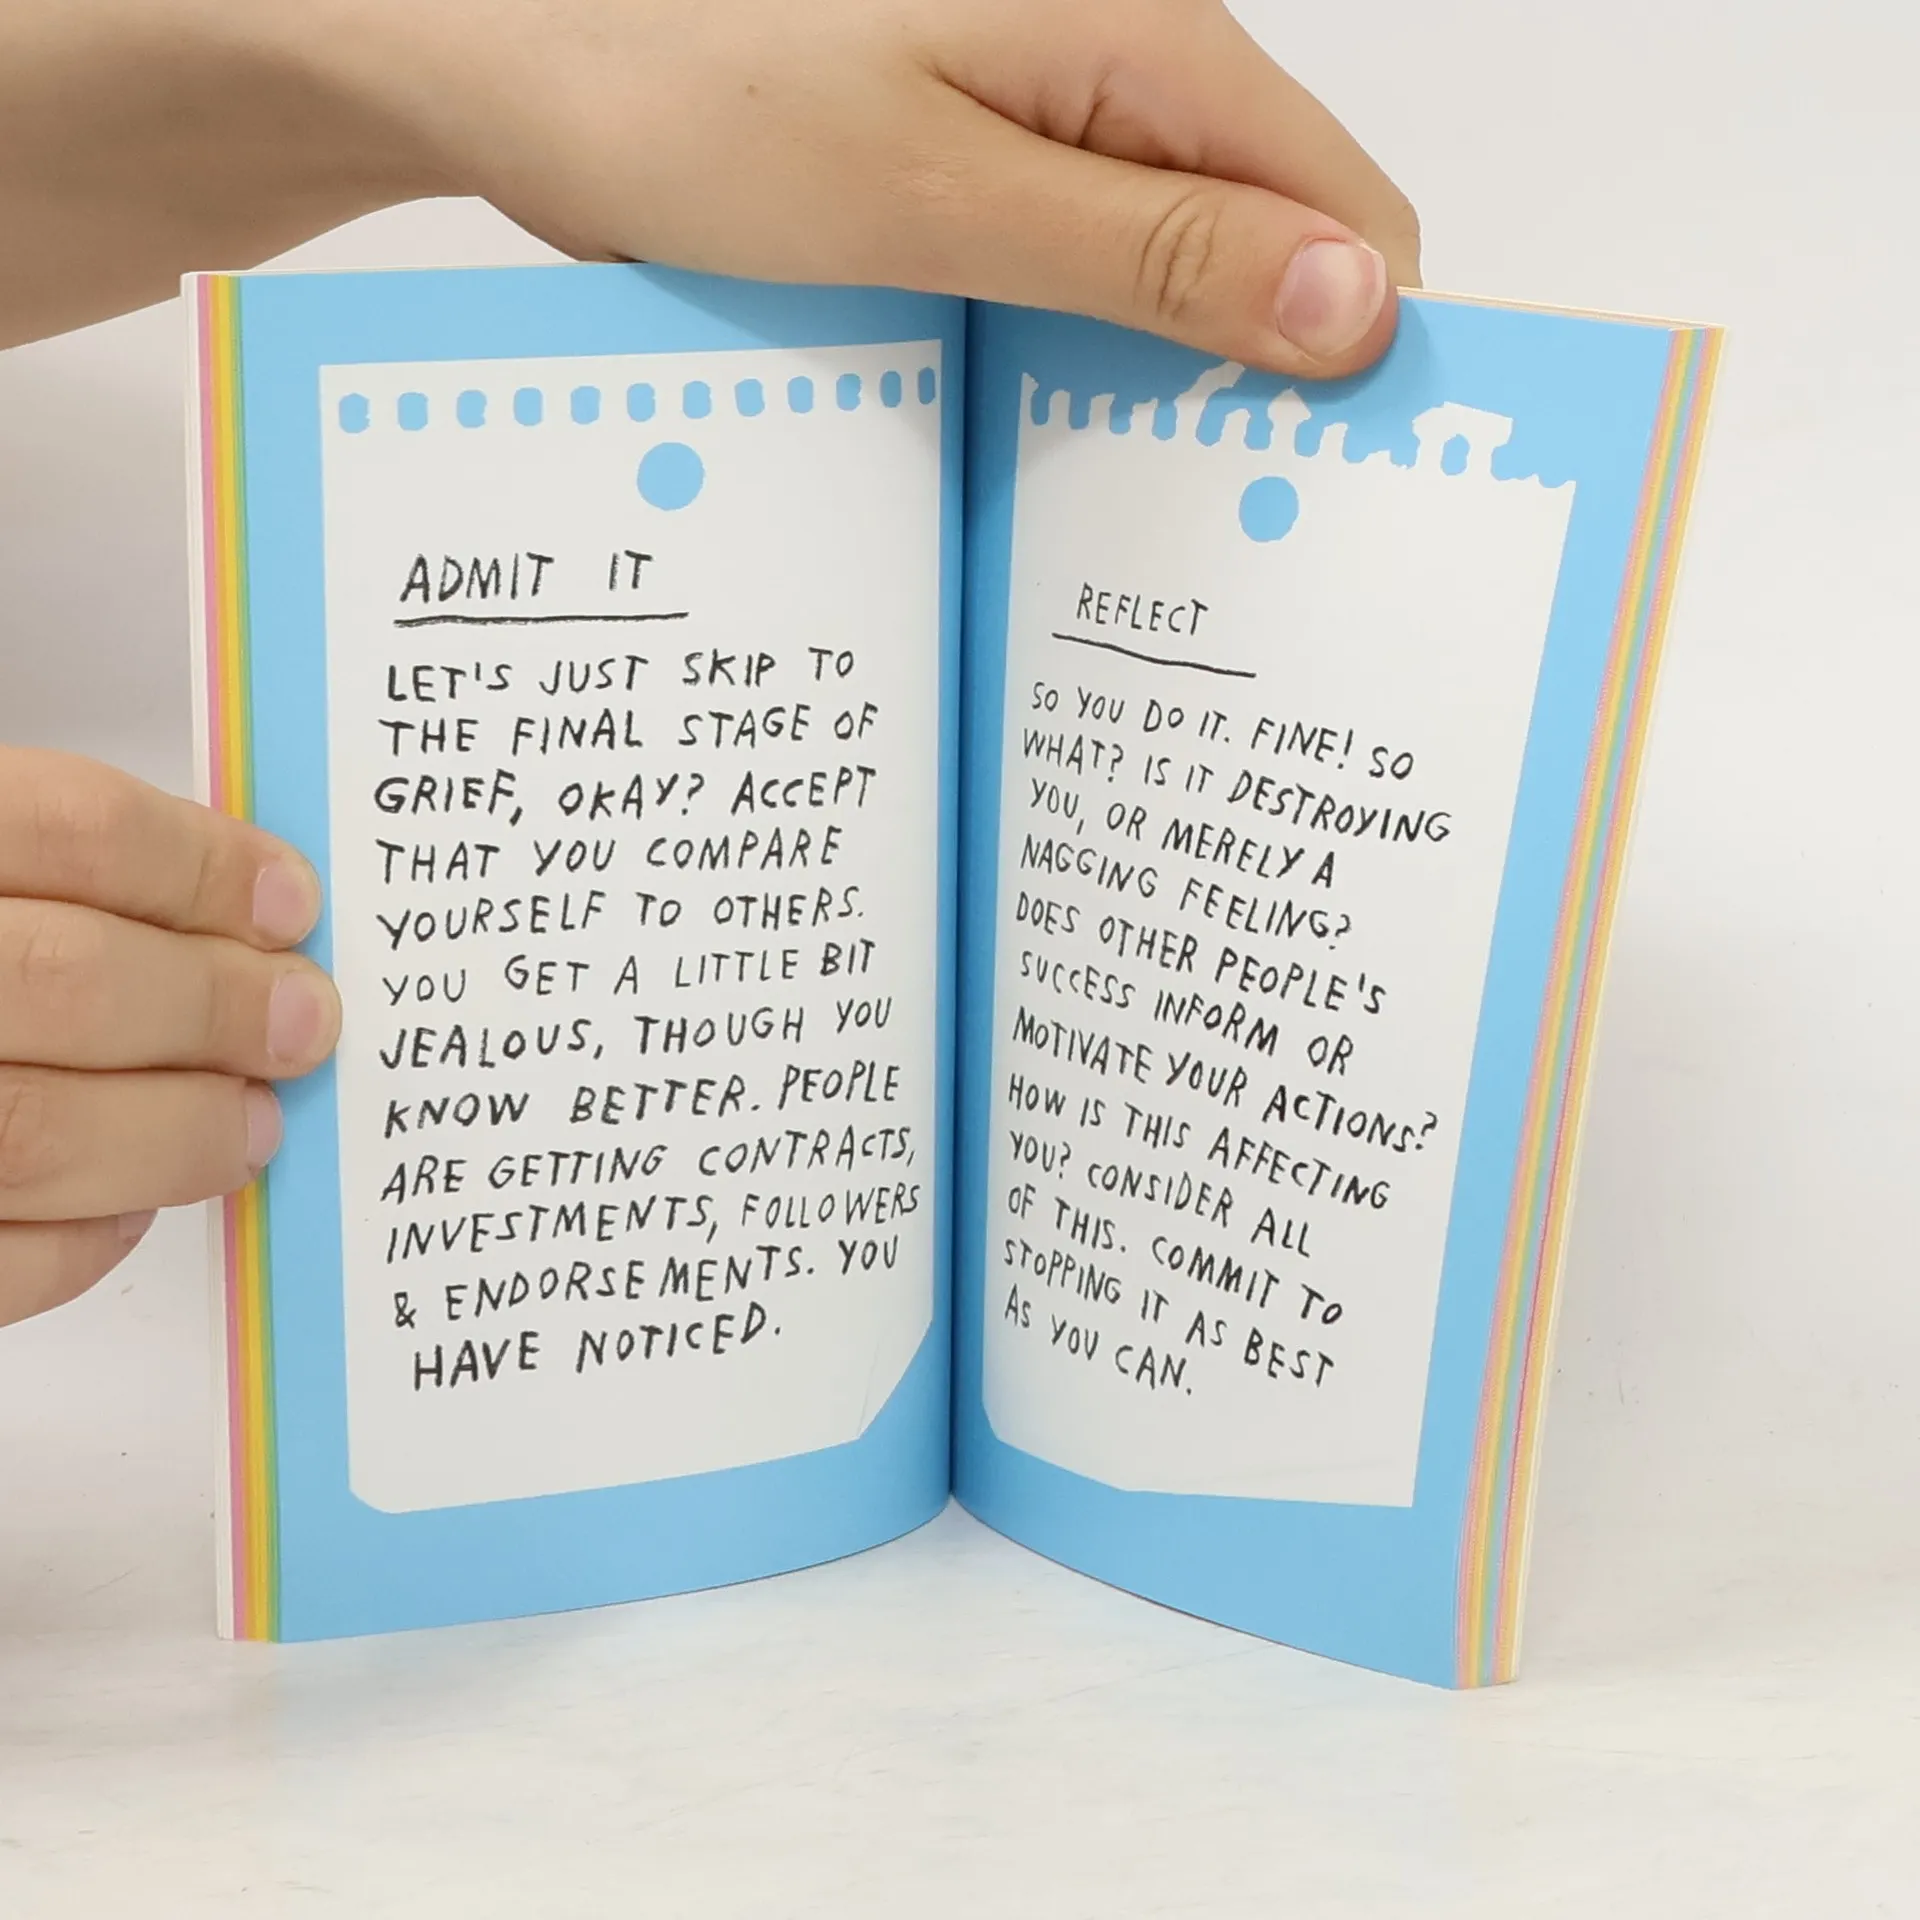 ADMIT IT
LET'S JUST SKIP TO
THE FINAL STAGE OF
GRIEF, OKAY? ACCEPT
THAT YOU COMPARE
YOURSELF TO OTHERS.
YOU GET A LITTLE BIT
JEALOUS, THOUGH YOU
KNOW BETTER. PEOPLE
ARE GETTING CONTRACTS,
INVESTMENTS, FOLLOWERS
& ENDORSEMENTS. YOU
HAVE NOTICED.
REFLECT
SO YOU DO IT. FINE! SO
WHAT? IS IT DESTROYING
YOU, OR MERELY A
NAGGING FEELING?
DOES OTHER PEOPLE'S
SUCCESS INFORM OR
MOTIVATE YOUR ACTIONS?
HOW IS THIS AFFECTING
YOU? CONSIDER ALL
OF THIS. COMMIT TO
STOPPING IT AS BEST
AS YOU CAN.